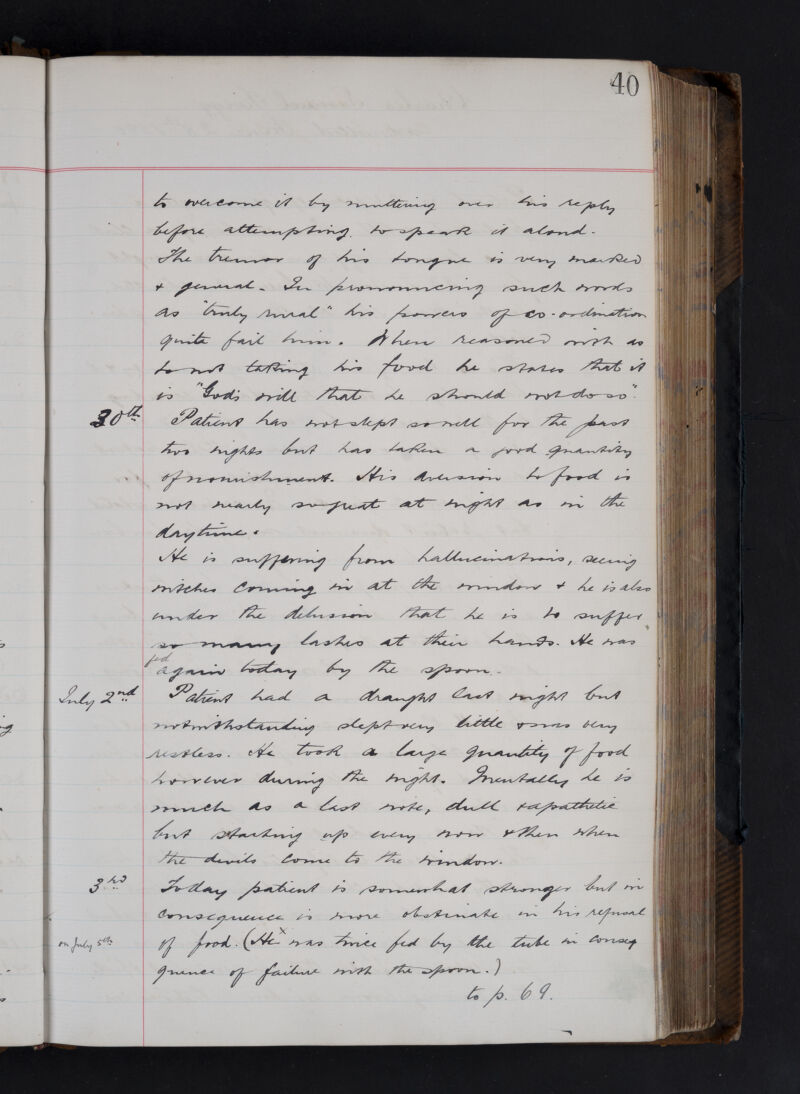 40
to overcome it by muttering over his reply
before attempting to speak it aloud.
The tremor of his tongue is very marked
& general. In pronouncing such words
as "truly rural" his powers of co-ordination
quite fail him. When reasoned with as
to not taking his food he states that it
is "God's will that he should not do so".
30th Patient has not slept so well for the past
two nights but has taken a good quantity
of nourishment. His aversion to food is
not nearly so great at night as in the
daytime.
He is suffering from hallucinations, seeing
witches coming in at the window & he is also
under the delusion that he is to suffer
so many lashes at their hands. He was
fed
again today by the spoon.
July 2nd Patient had a draught last night but
notwithstanding slept very little & was very
restless. He took a large quantity of food
however during the night. Mentally he is
much as a last note, dull & apathetic
but starting up every now & then when
the devils come to the window.
3rd Today patient is somewhat stronger but in
consequence is more obstinate in his refusal
on July 5th of food. (He x was twice fed by the tube in conse
quence of failure with the spoon.)
to p. 69.